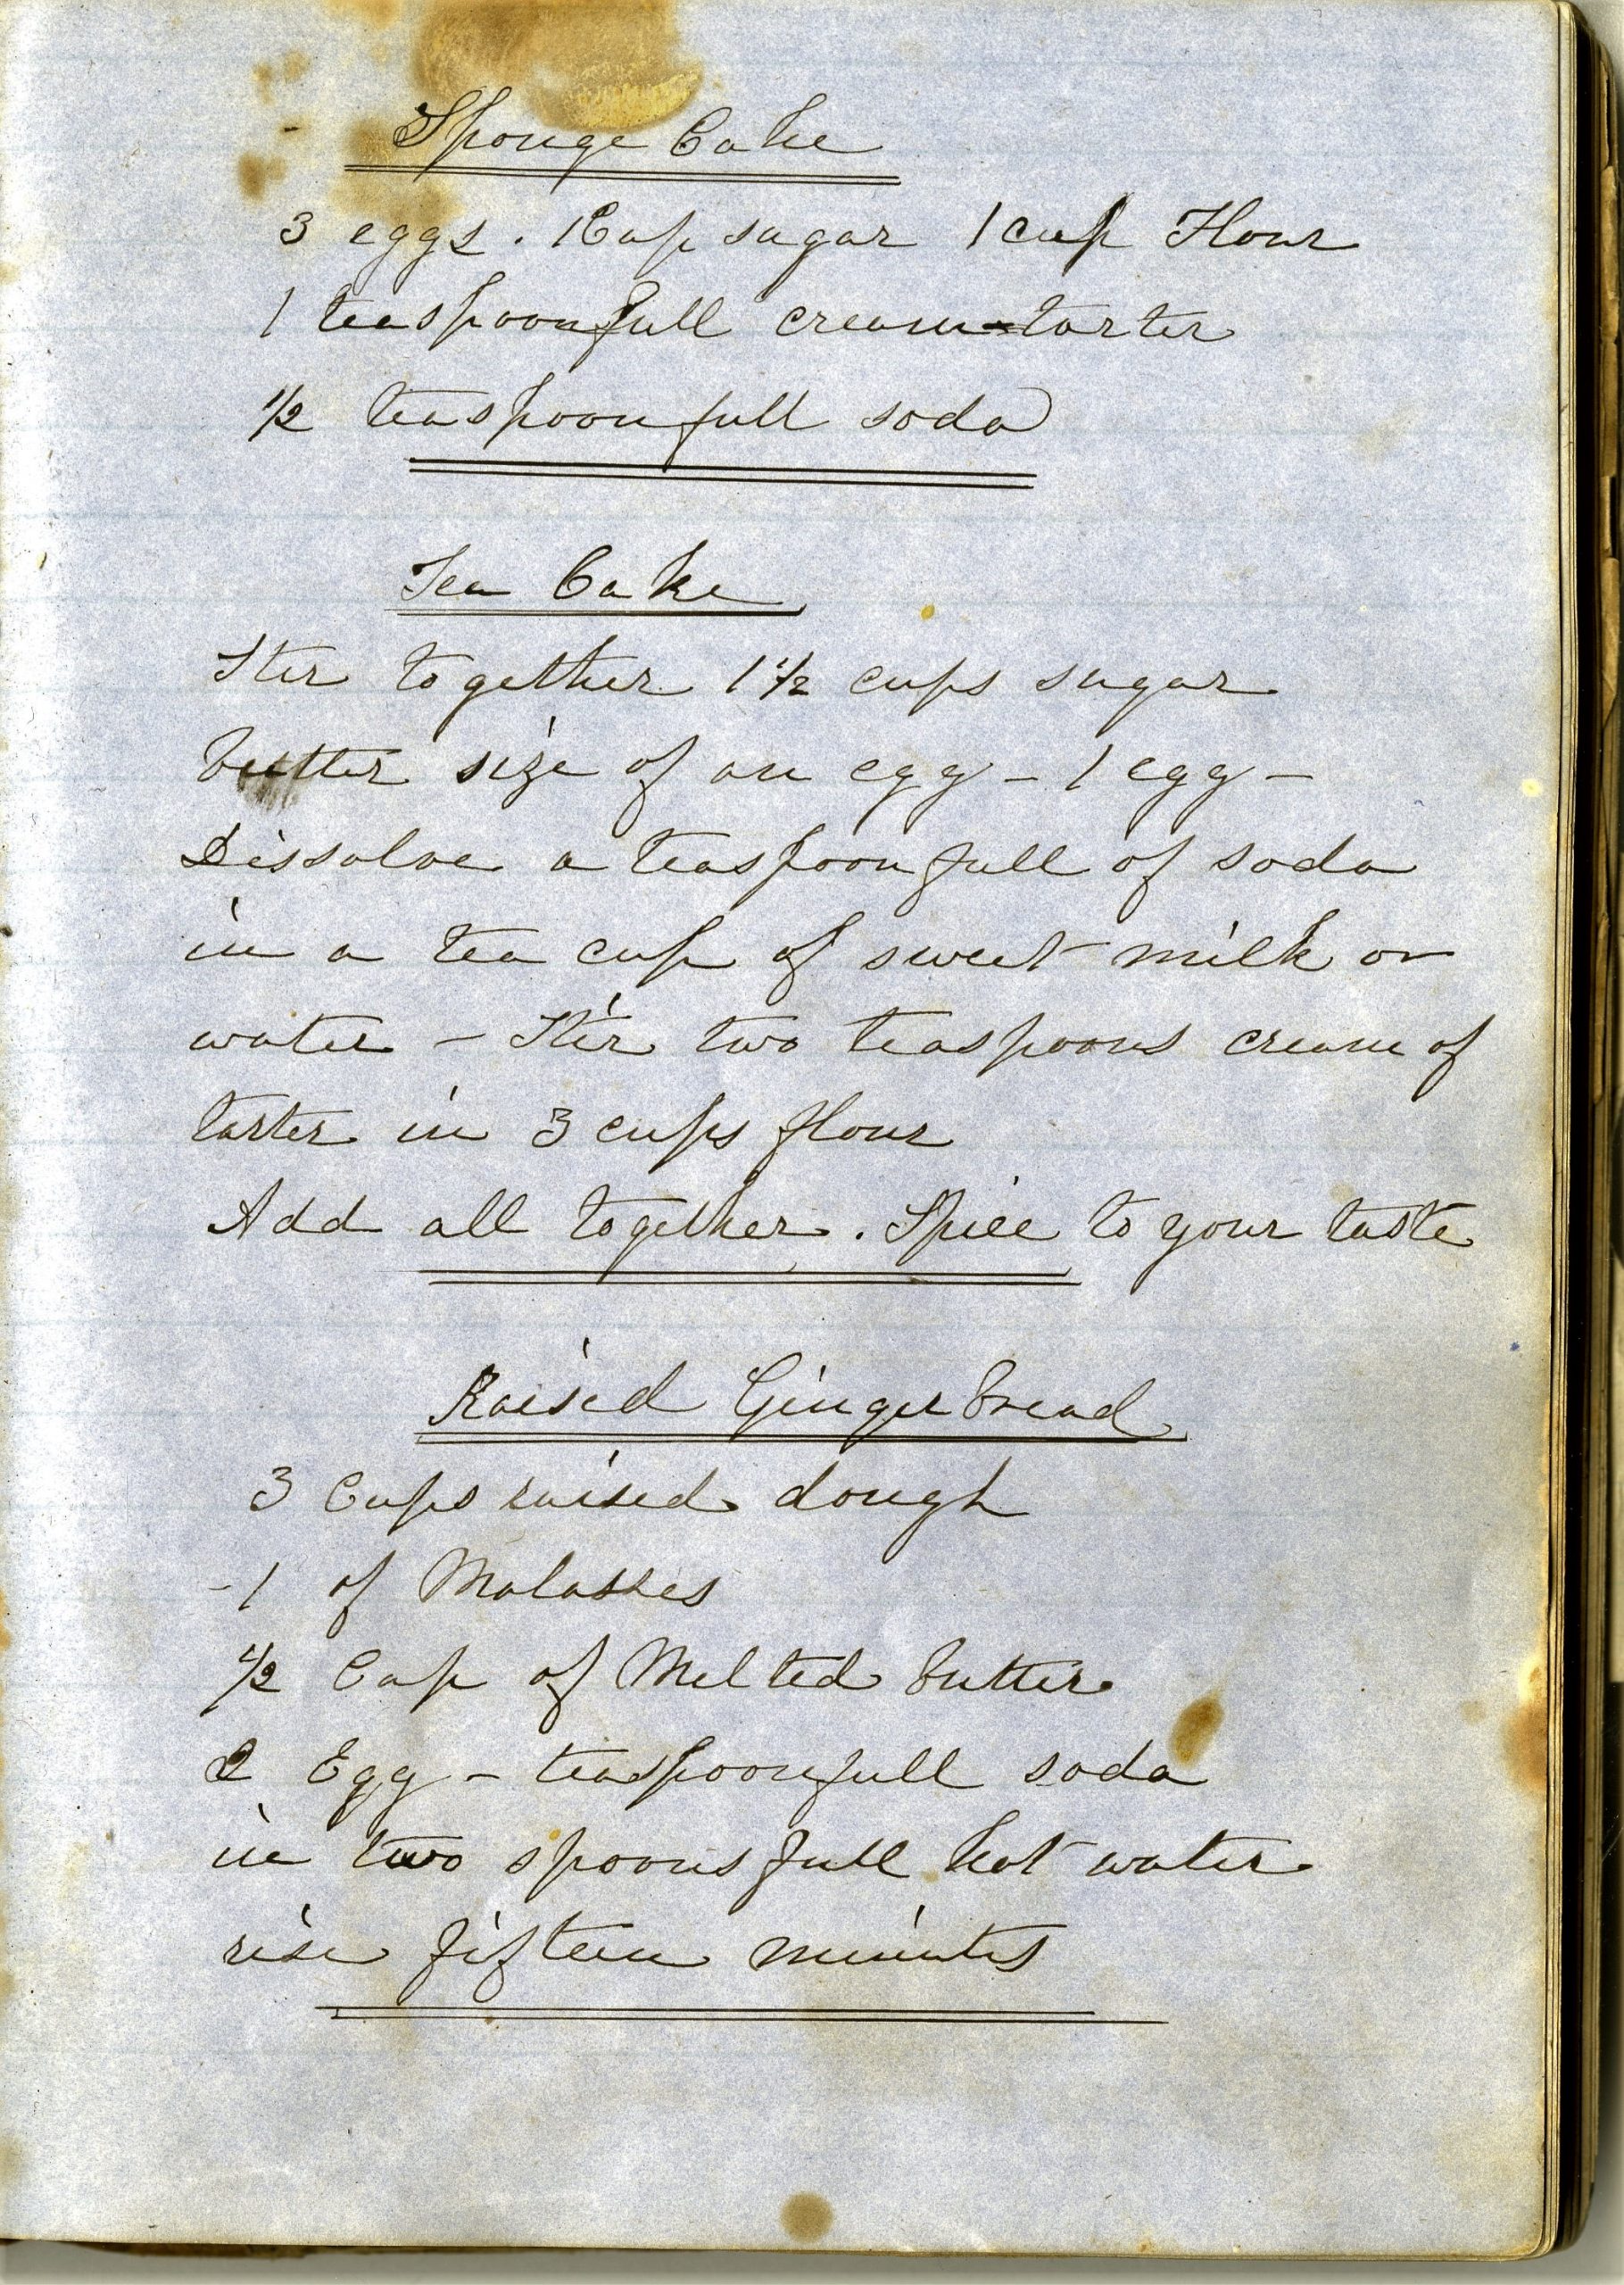 Sponge Cake
3 eggs. 1 Cup sugar 1 cup Flour
1 teaspoonfull cream-tarter
1/2 teaspoonfull soda
Tea Cake
Ster together 1 1/2 cups sugar
butter size of an egg - 1 egg -
Dissolve a teaspoonfull of soda
in a tea cup of sweet milk or
water - Stir two teaspoons cream of
tarter in 3 cups flour
Add all together. Spice to your taste
Raised Ginger bread
3 Cups raised dough
-1 of Molasses
1/2 Cup of Melted butter
2 Egg - teaspoonfull soda
in two spoonsfull hot water
rise fifteen minutes